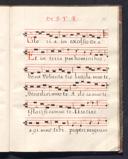 in excelsis de
Et in terra pax hominibus
voluntatis laudamus te.
Benedicimus te Adoramus te.
Glorificamus te Gratias
agimus tibi propter magnam